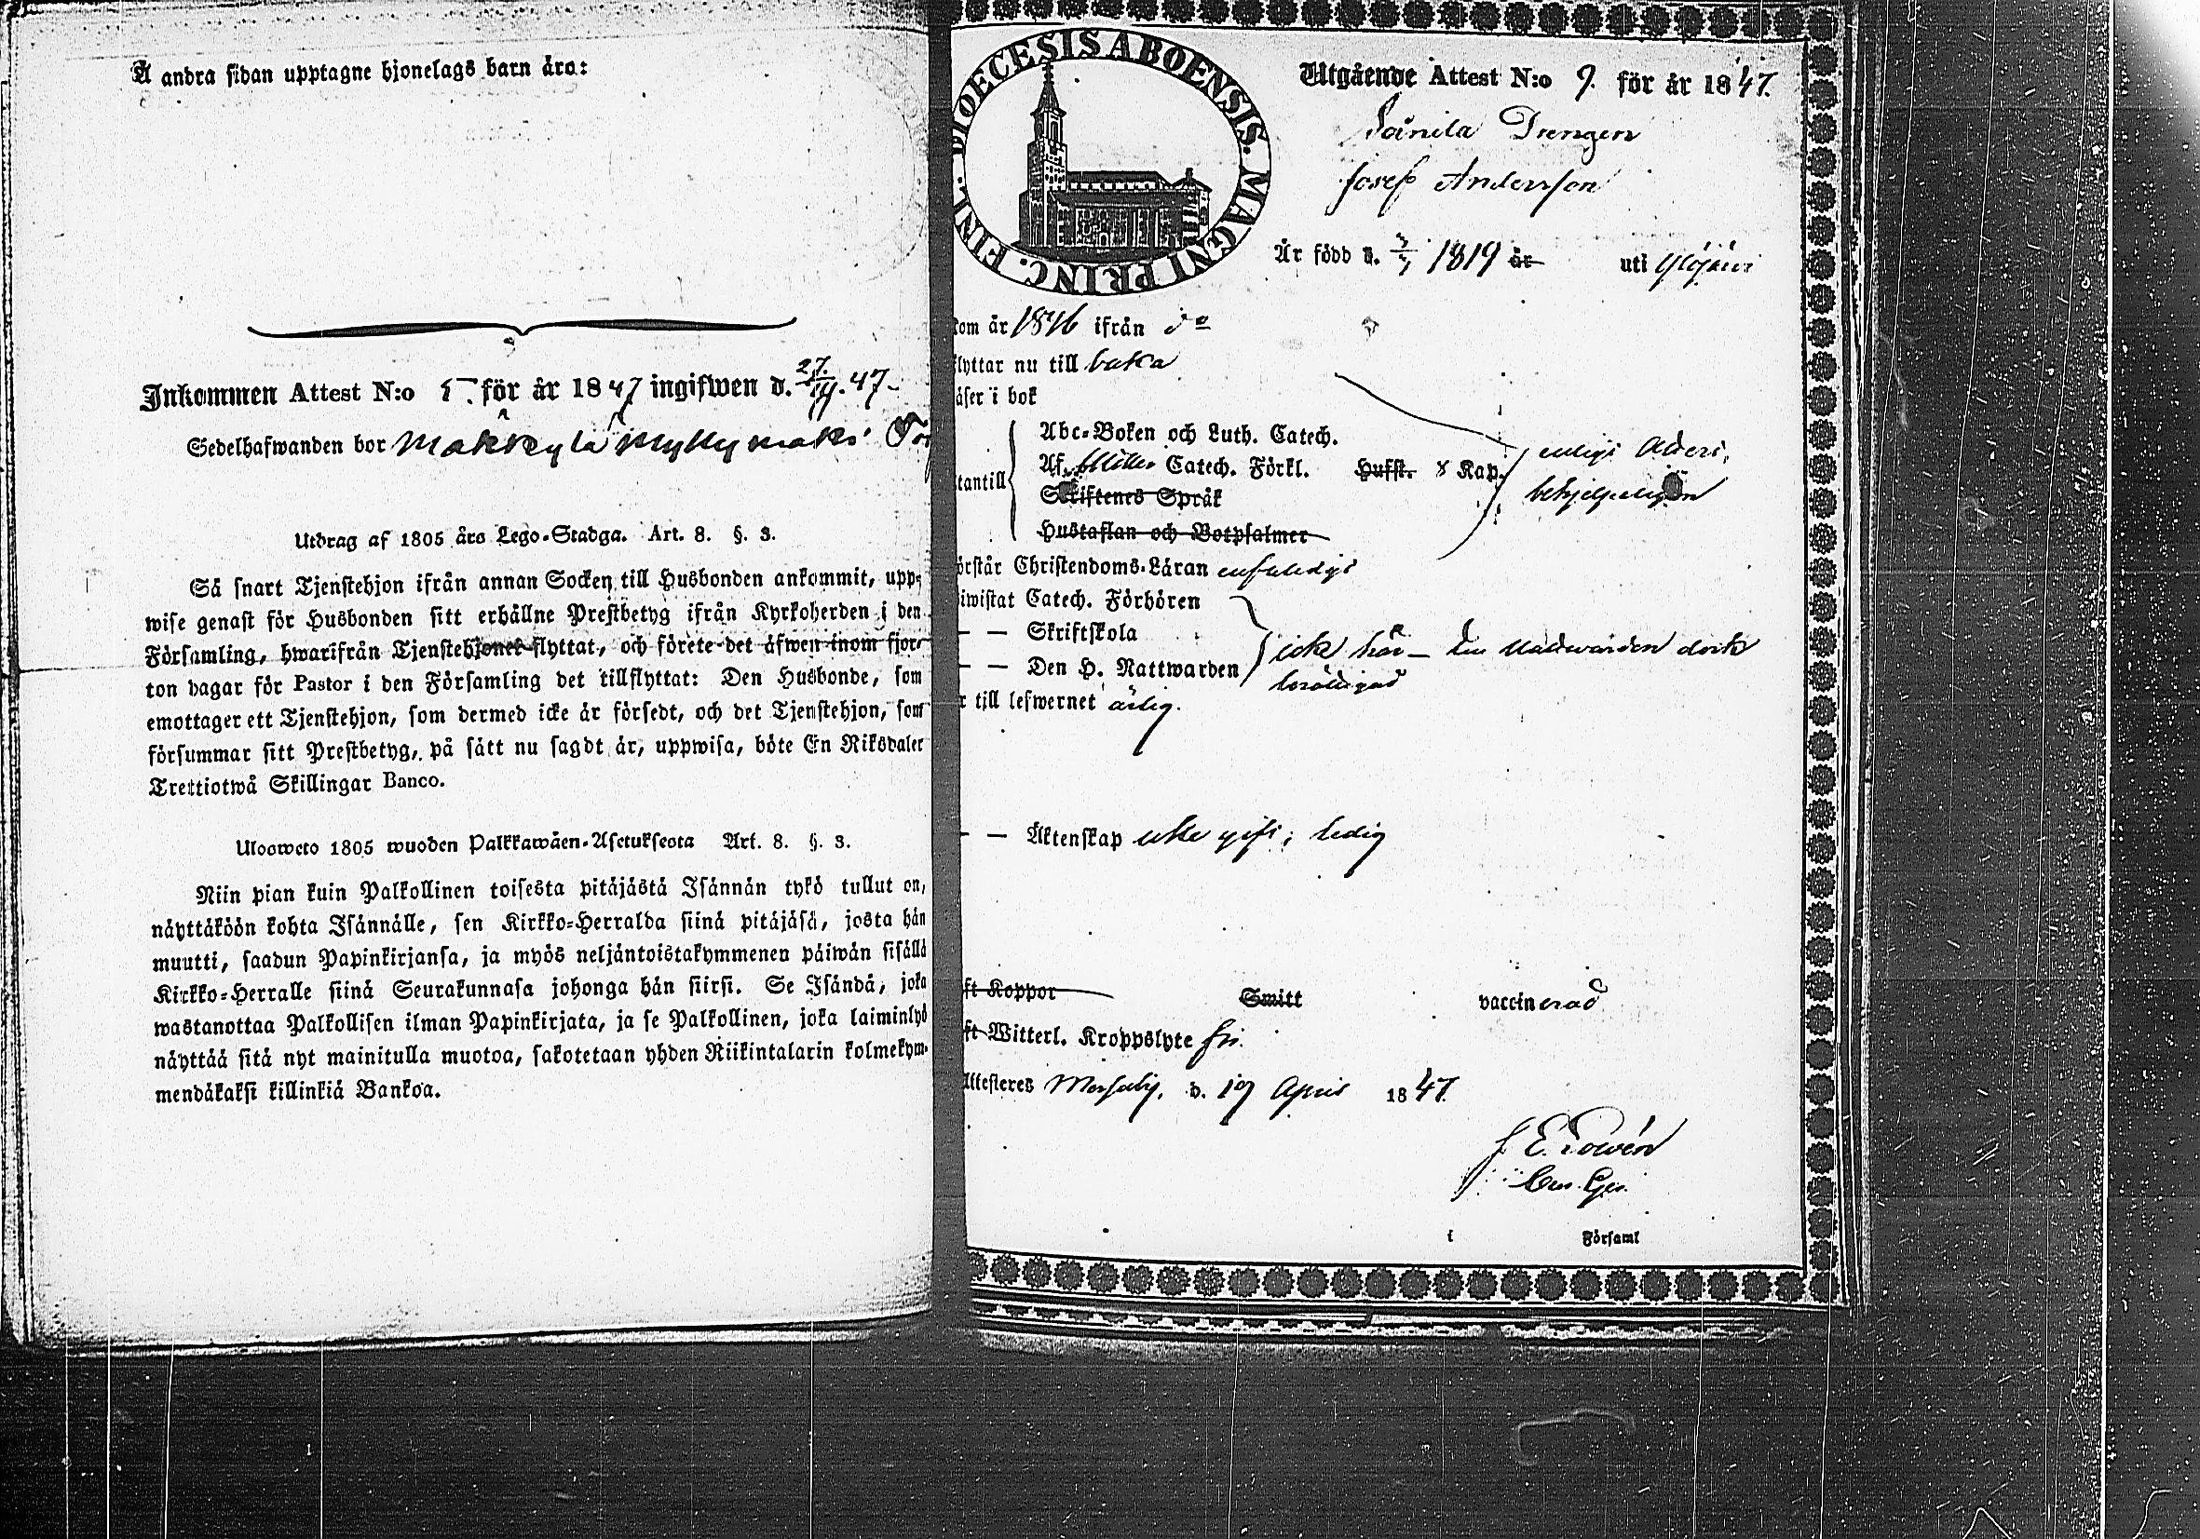 Å andra sidan upptagne hjonelags barn äro:
Inkommen Attest N:o 5. för år 1847 ingifwen d. 27/4. 47
Sedelhafwanden bor Mäkkylä Myllymäki
Utdrag af 1805 års Lego-Stadga. Art. 8. §. 3.
Så snart Tjenstehjon ifrån annan Socken till Husbonden ankommit, upp-
wise genast för Husbonden sitt erhållne Prestbetyg ifrån Kyrkoherden i den
Församling, hwarifrån Tjenstehjonet flyttat, och förete det äfwen inom fjor-
ton dagar för Pastor i den Församling det tillflyttat: Den Husbonde, som
emottager ett Tjenstehjon, som dermed icke är försedt, och det Tjenstehjon, som
försummar sitt Prestbetyg, på sätt nu sagdt är, uppwisa, böte En Riksdaler
Trettiotwå Skillingar Banco.
Ulosweto 1805 wuoden Palkkawäen-Asetuksesta Art. 8. §. 3.
Niin pian kuin Palkollinen toisesta pitäjästä Isännän tykö tullut on,
näyttäköön kohta Isännälle, sen Kirkko-Herralda siinä pitäjäsä, josta hän
muutti, saadun Papinkirjansa, ja myös neljäntoistakymmenen päiwän sisällä
Kirkko-Herralle siinä Seurakunnasa johonga hän siirsi. Se Isändä, joka
wastanottaa Palkollisen ilman Papinkirjata, ja se Palkollinen, joka laiminlyö
näyttää sitä nyt mainitulla muotoa, sakotetaan yhden Riikintalarin kolmekym-
mendäkaksi killinkiä Bankoa.
DIOECESIS ABOENSIS. MAGNI PRINC. FINL.
Utgående Attest N:o 9. för år 1847.
Drengen
Josef Andersson
Är född d. 1819 år uti Ylöjärvi
kom år 1846 ifrån do
flyttar nu till baka
läser i bok
utantill
Abc-Boken och Luth. Catech.
Af Möller Catech. Förkl. Hufst. 8 Kap.
enligt Attest,
behjelpeligen
Skriftenes Språk
Hustaflan och Botpsalmer
förstår Christendoms-Läran enfaldigt
biwistat Catech. Förhören
— — Skriftskola
icke här — Nattwarden dock
— — Den H. Nattwarden
berättigad
är till lefwernet ärlig.
— — Äktenskap icke gift; ledig
haft Koppor Smitt vaccinerad
haft Witterl. Kroppslyte fri.
Attesteres Messuby, d. 19 April 1847.
i Församl